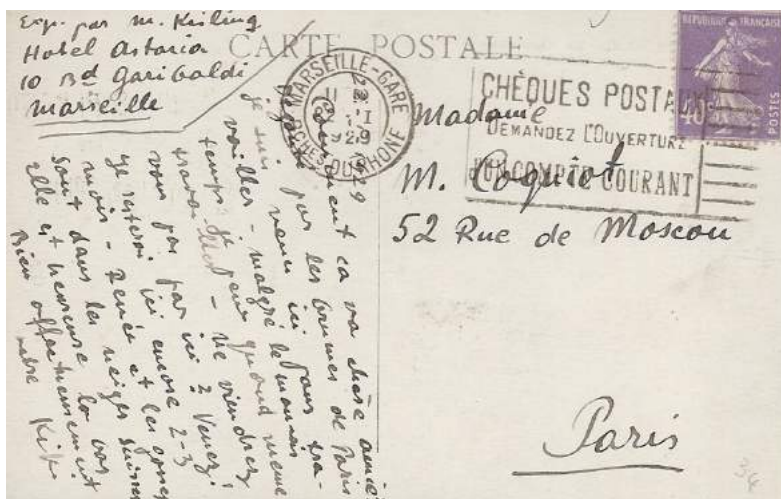 Exp. par M. Kisling
Hotel Astoria
10 Bd Garibaldi
Marseille
CARTE POSTALE
MARSEILLE-GARE
1929
BCHES DU RHONE
CHÈQUES POSTAUX
DEMANDEZ L'OUVERTURE
D'UN COMPTE COURANT
REPUBLIQUE FRANÇAISE
40c
POSTES
Madame
M. Coquiot
52 Rue de Moscou
Paris
22 1929
Comment ca va chère amie
par les brumes de Paris
je suis venu ici pour tra-
vailler - malgré le mauvais
temps je peux quand même
travailler - Ne viendrez
vous pas par ici ? Venez!
Je resterai ici encore 2-3
mois - Renée et les gosses
sont dans les neiges suisses
elle est heureuse la
Bien affectueusement
votre Kiki
34